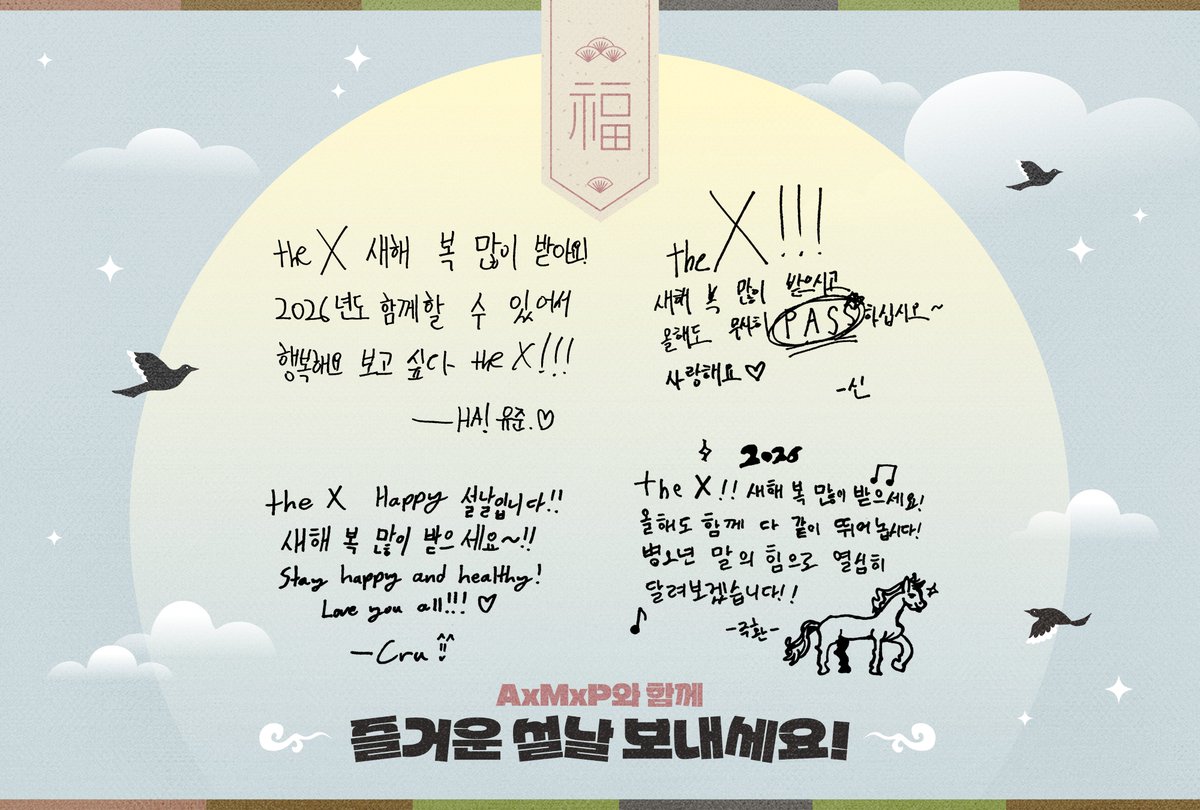 福
the X 새해 복 많이 받아요!
2026년도 함께할 수 있어서
행복해요 보고 싶다 the X!!!
— HA! 유준.♡
the X!!!
새해 복 많이 받으시고
올해도 무사히 PASS 하십시오~
사랑해요♡
-신
the X Happy 설날입니다!!
새해 복 많이 받으세요~!!
Stay happy and healthy!
Love you all!!! ♡
-Cru^^
2026
the X!! 새해 복 많이 받으세요!
올해도 함께 다 같이 뛰어 놉시다!
병오년 말의 힘으로 열심히
달려보겠습니다!!
-극환-
AxMxP와 함께
즐거운 설날 보내세요!